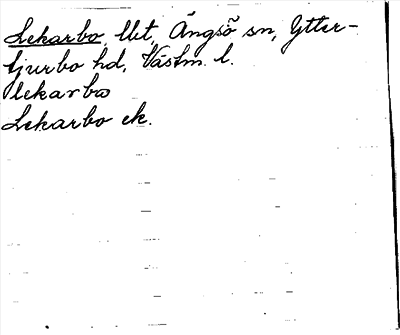 Lekarbo, lht, Ängsö sn, Ytter-
tjurbo hd, Västm. l.
lekarbω
Lekarbo ek.